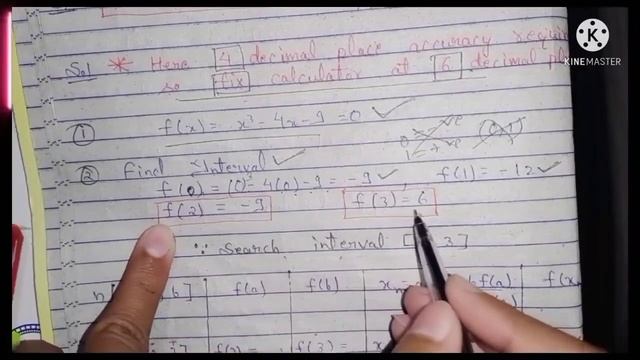 KINEMASTER
Sol * Here 4 decimal place accuracy requir
so fix calculator at 6 decimal pl
① f(x) = x³ - 4x - 9 = 0 ✓
② Find Interval ✓
f(0) = (0)³ - 4(0) - 9 = -9 ✓, f(1) = -12 ✓
f(2) = -9 f(3) = 6
∵ Search interval [ 3]
n [ , b] f(a) f(b) f(a) f(x
3] f(2) = f(3) =